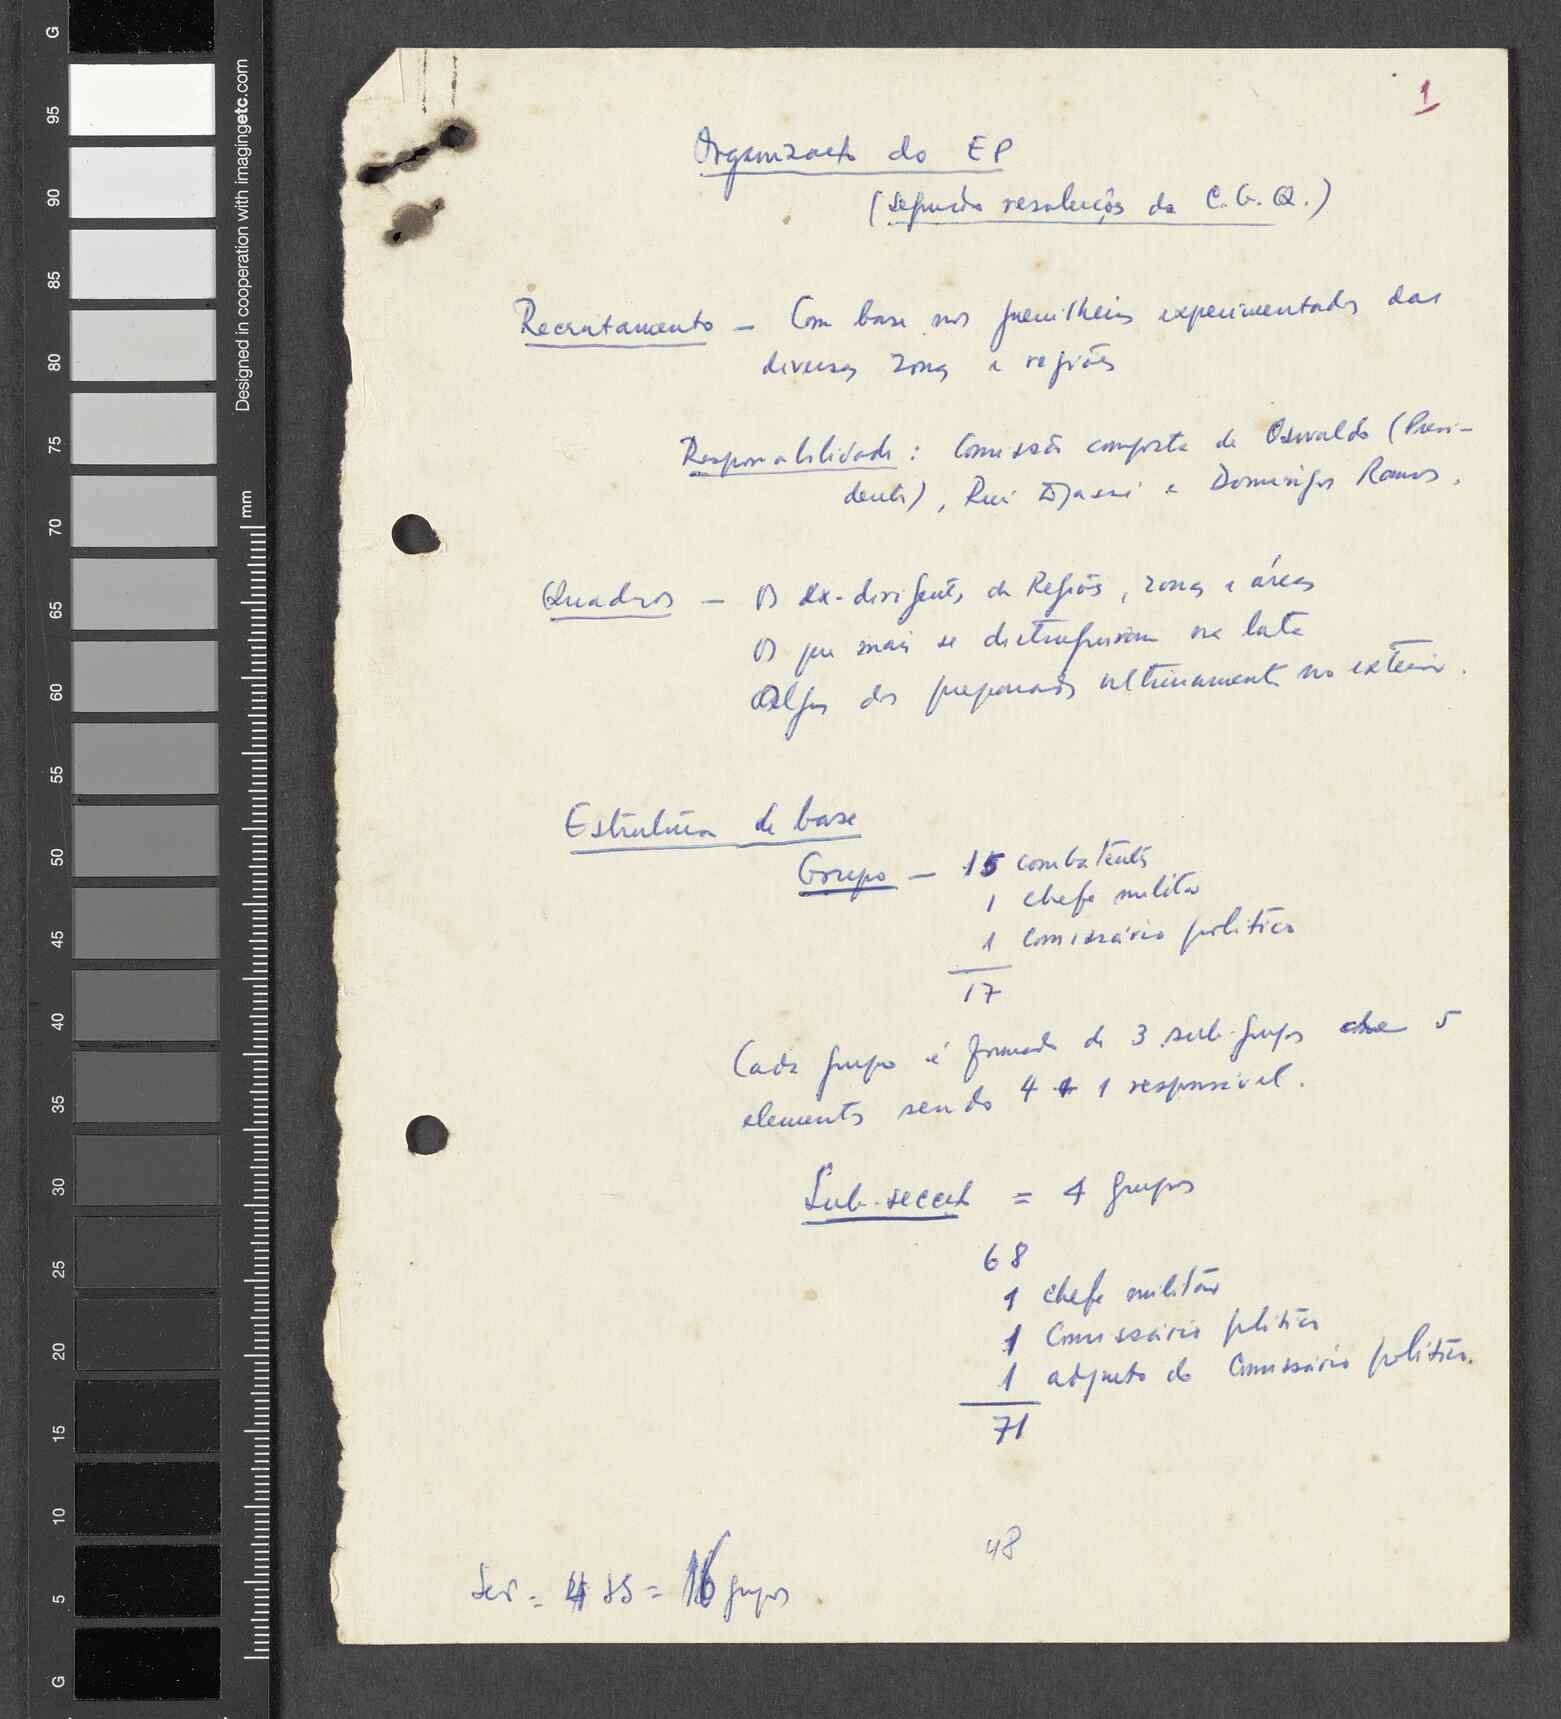 1
Organização do EP
(segundo resolução do C.G.Q.)
Recrutamento — Com base nos guerrilheiros experimentados das
diversas zonas e regiões
Responsabilidade : Comissão composta de Osvaldo (Presi-
dente), Rui Djassi e Domingos Ramos.
Quadros — Os ex-dirigentes de Região, zonas e áreas
Os que mais se distinguiram na luta
Alguns dos preparados ultimamente no exterior.
Estrutura de base
Grupo — 15 combatentes
1 chefe militar
1 comissário político
17
Cada grupo é formado de 3 sub-grupos de 5
elementos sendo 4 + 1 responsável.
Sub-secção = 4 grupos
68
1 chefe militar
1 Comissário político
1 adjunto do Comissário político.
71
48
= 16 grupos
G
95
90
85
80
75
70
65
60
55
50
45
40
35
30
25
20
15
10
5
G
Designed in cooperation with imagingetc.com
mm